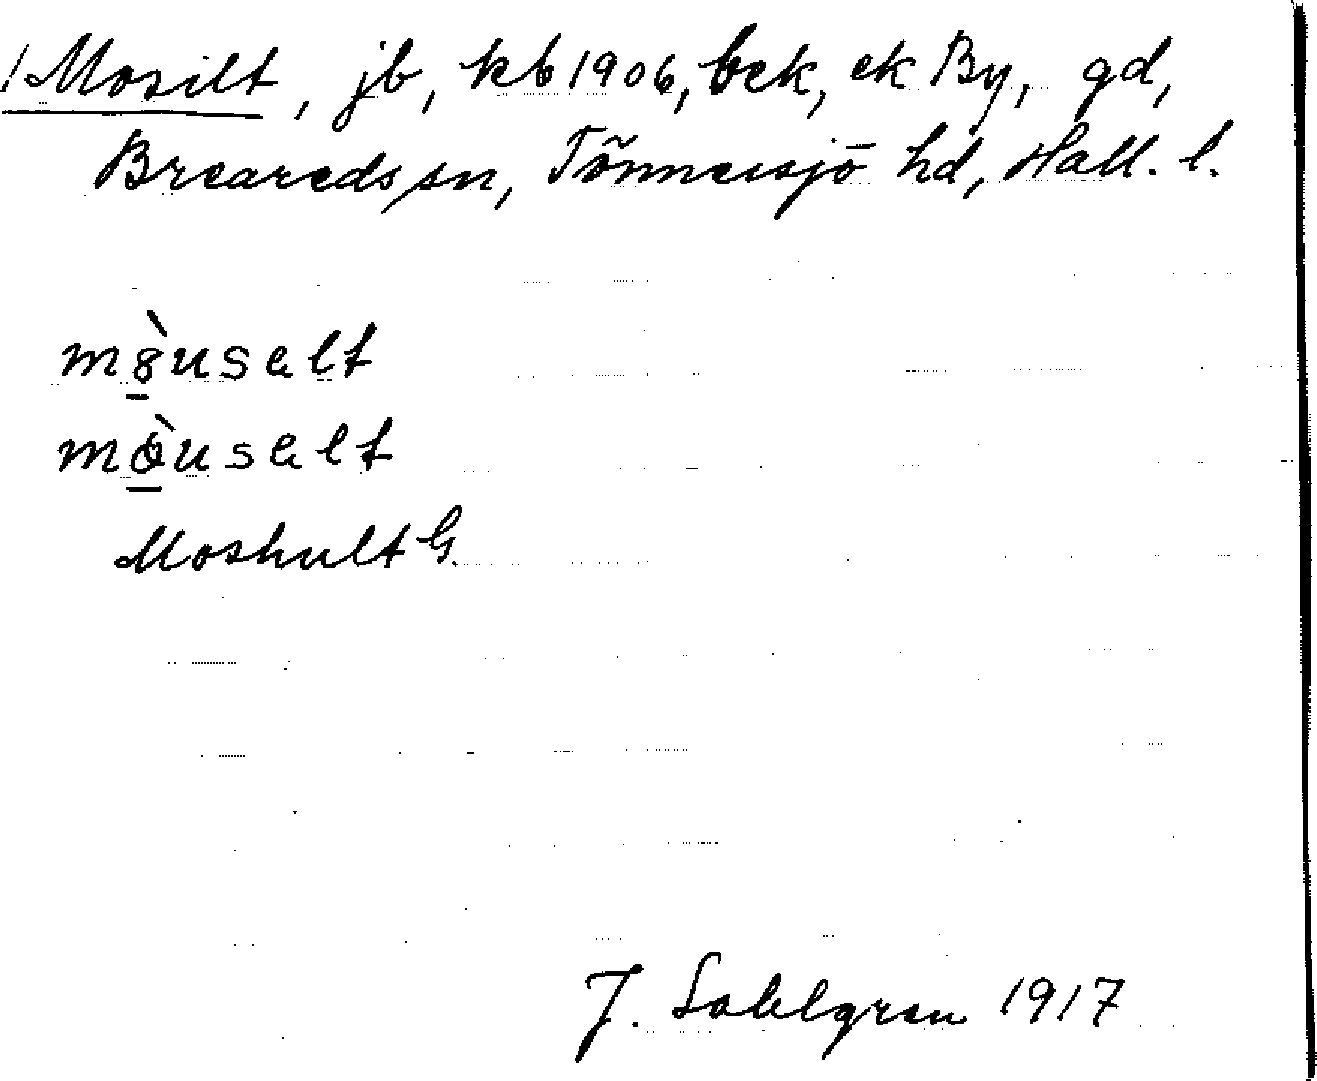 /Mosilt, jb, kb 1906, bek, ek By, gd,
Breareds sn, Tönnersjö hd, Hall. l.
mò̱uselt
mò̱uselt
Moshult G.
J. Sahlgren 1917